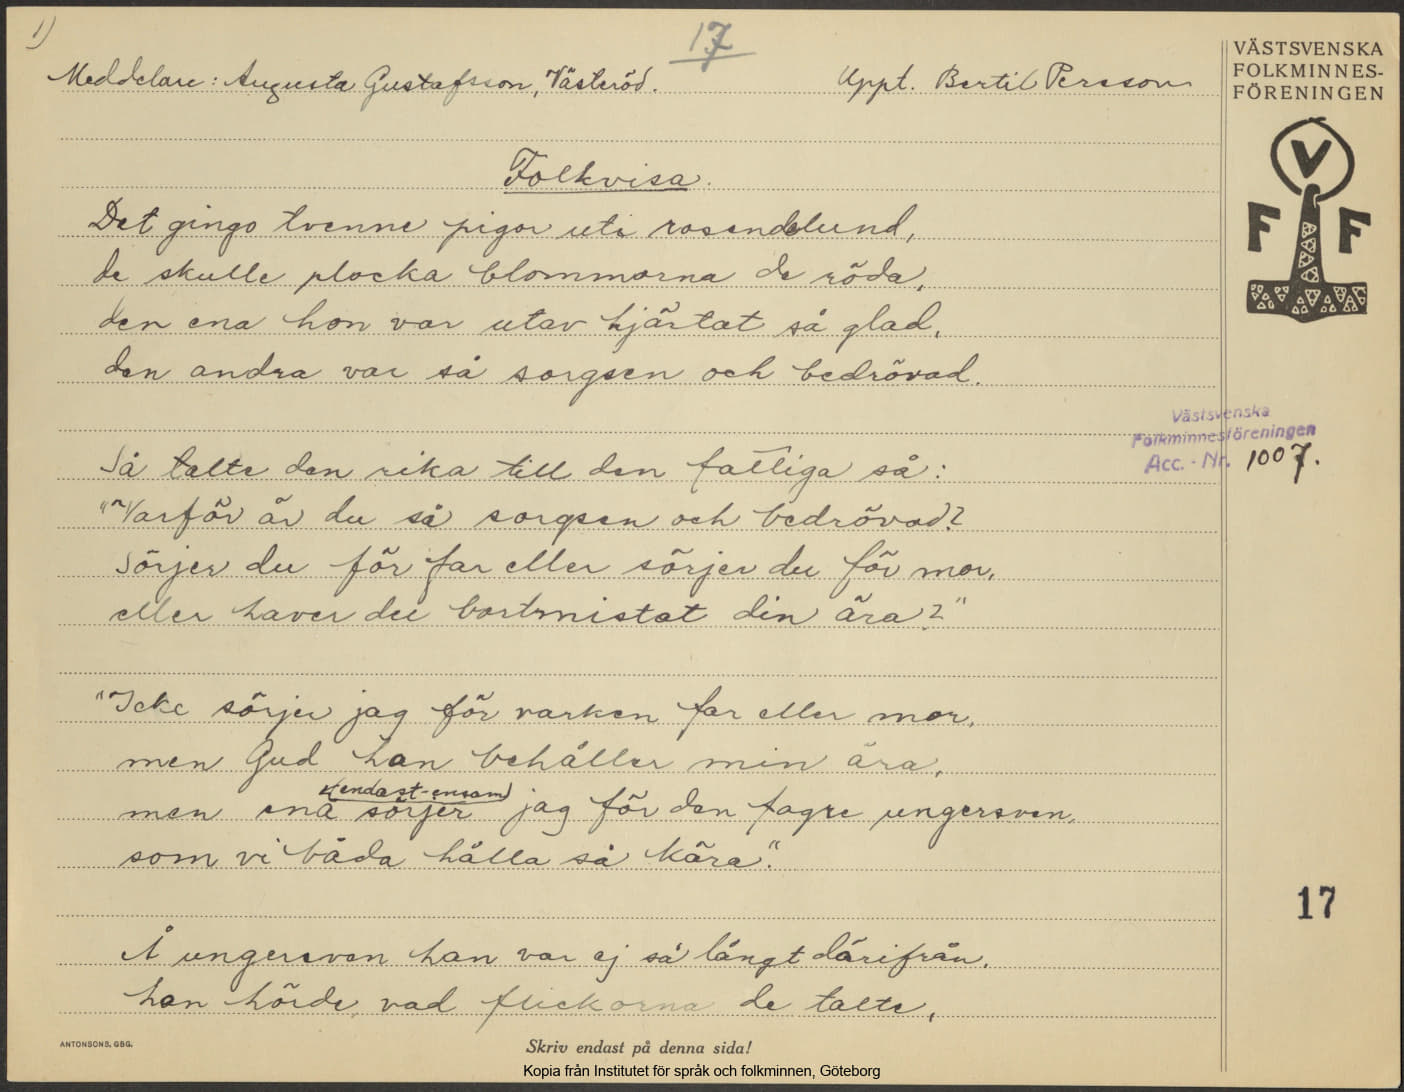 1)
17
Meddelare: Augusta Gustafsson, Västeröd. Uppt. Bertil Persson
VÄSTSVENSKA
FOLKMINNES-
FÖRENINGEN
V
F F
Folkvisa.
Det gingo tvenne pigor uti rosendelund,
de skulle plocka blommorna de röda,
den ena hon var utav hjärtat så glad,
den andra var så sorgsen och bedrövad.
Västsvenska
Folkminnesföreningen
Acc. - Nr. 1007.
Så talte den rika till den fattiga så:
"Varför är du så sorgsen och bedrövad?
Sörjer du för far eller sörjer du för mor,
eller haver du bortmistat din ära?"
"Icke sörjer jag för varken far eller mor,
men Gud han behåller min ära,
(endast-ensam)
men ena sörjer jag för den fagre ungersven,
som vi båda hålla så kära".
17
Å ungersven han var ej så långt därifrån,
han hörde, vad flickorna de talte,
ANTONSONS, GBG.
Skriv endast på denna sida!
Kopia från Institutet för språk och folkminnen, Göteborg